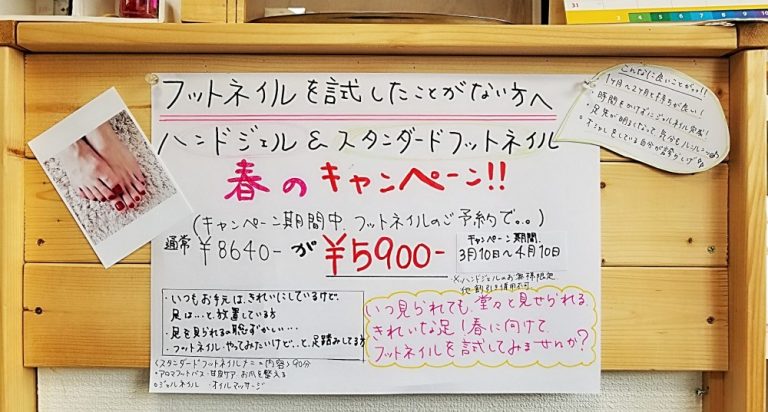 フットネイルを試したことがない方へ
ハンドジェル & スタンダードフットネイル
春のキャンペーン!!
(キャンペーン期間中、フットネイルのご予約で。。。)
通常 ¥8640- が ¥5900-
キャンペーン期間
3月10日〜4月10日
※ハンドジェルのお客様限定
他割引き併用不可
・いつもお手元は、きれいにしているけど、
足は…と、放置している方
・足を見られるの恥ずかしい…
・フットネイル、やってみたいけど…と、足踏みしてる方
いつ見られても、堂々と見せられる、
きれいな足!春に向けて、
フットネイルを試してみませんか?
〈スタンダードフットネイルメニュー内容〉90分
・アロマフットバス ・甘皮ケア、お爪を整える
・ジェルネイル ・オイルマッサージ
こんなに良いことが!!
1ヶ月〜2ヶ月と持ちが良い!
・時間をかけずにジェルネイル完成!
・足元が明るくなって、気分もルンルン♪
・オシャレをしている自分が
31
3 4 5 6 7 8 9 10